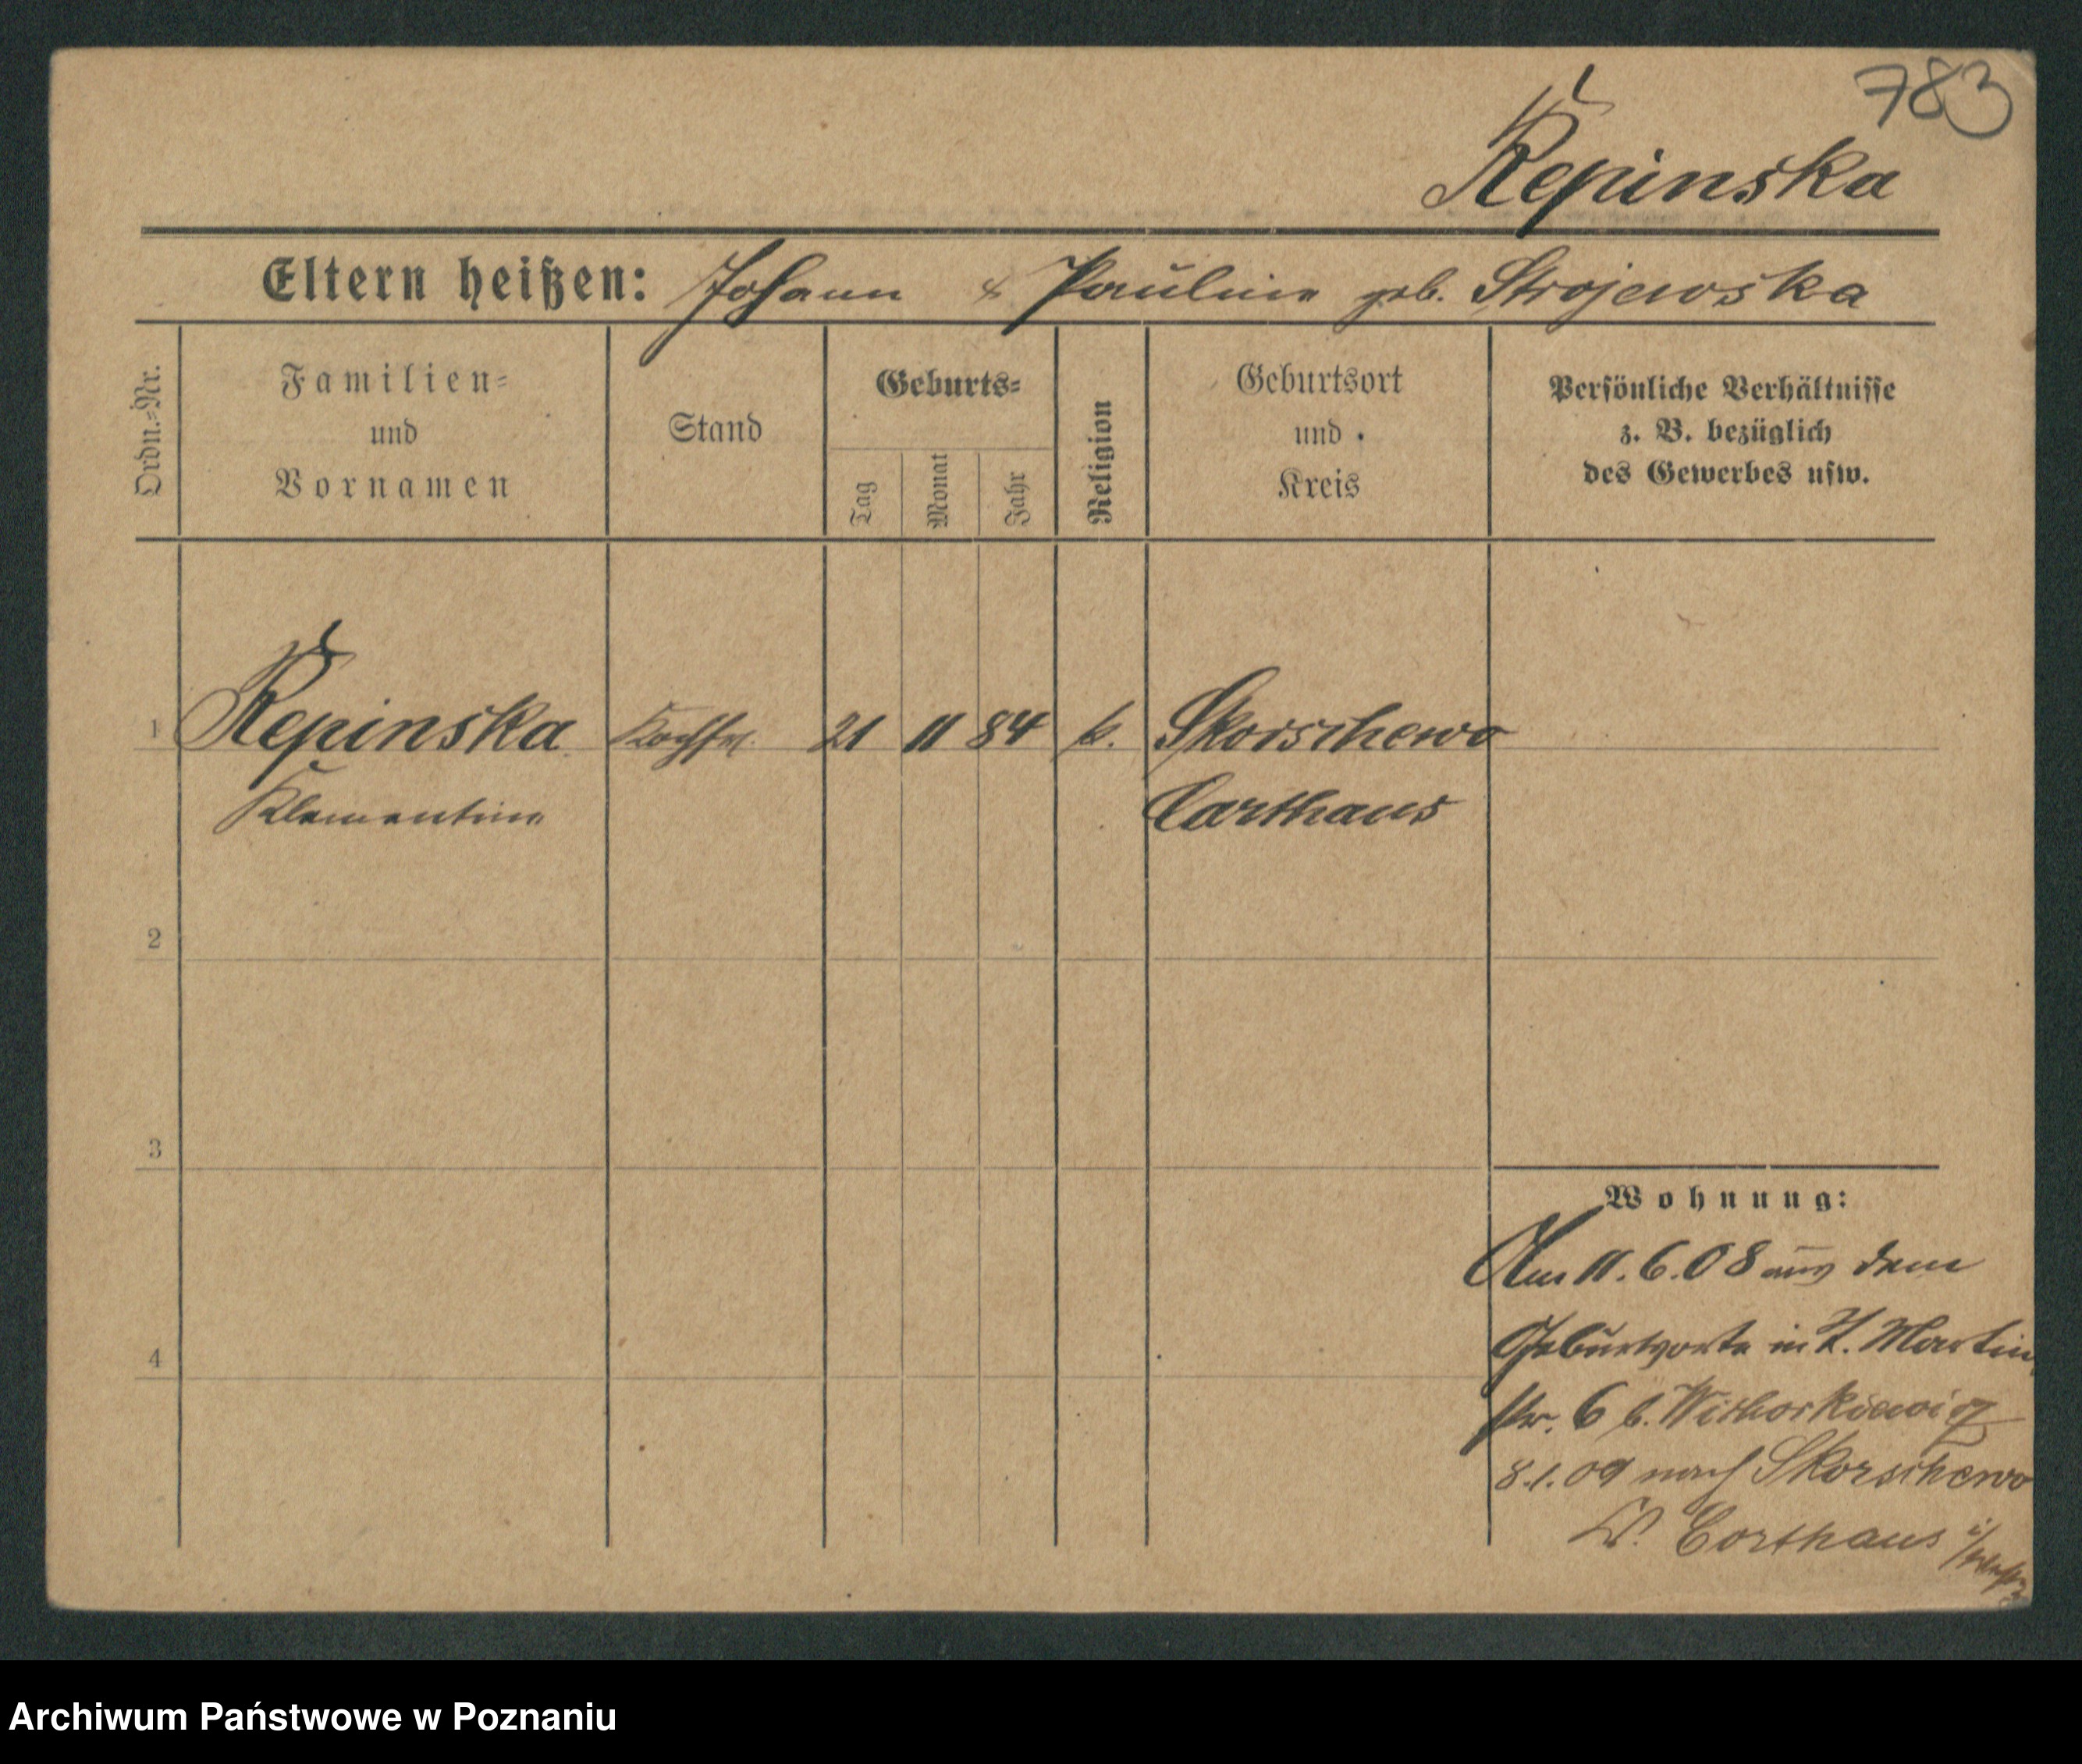 783
Repinska
Eltern heißen: Johann & Pauline geb. Strojewska
Ordn.=Nr.
Familien=
und
Vornamen
Stand
Geburts=
Tag
Monat
Jahr
Religion
Geburtsort
und
Kreis
Persönliche Verhältnisse
z. B. bezüglich
des Gewerbes usw.
1 Repinska 21 11 84 k. Skorschewo
Klementine Carthaus
2
3
4
Wohnung:
Am 11.6.08 aus dem
Geburtsorte in St. Martin
str. 6 b. Wichorkiewicz
8.1.09 nach Skorschewo
Corthaus
Archiwum Państwowe w Poznaniu